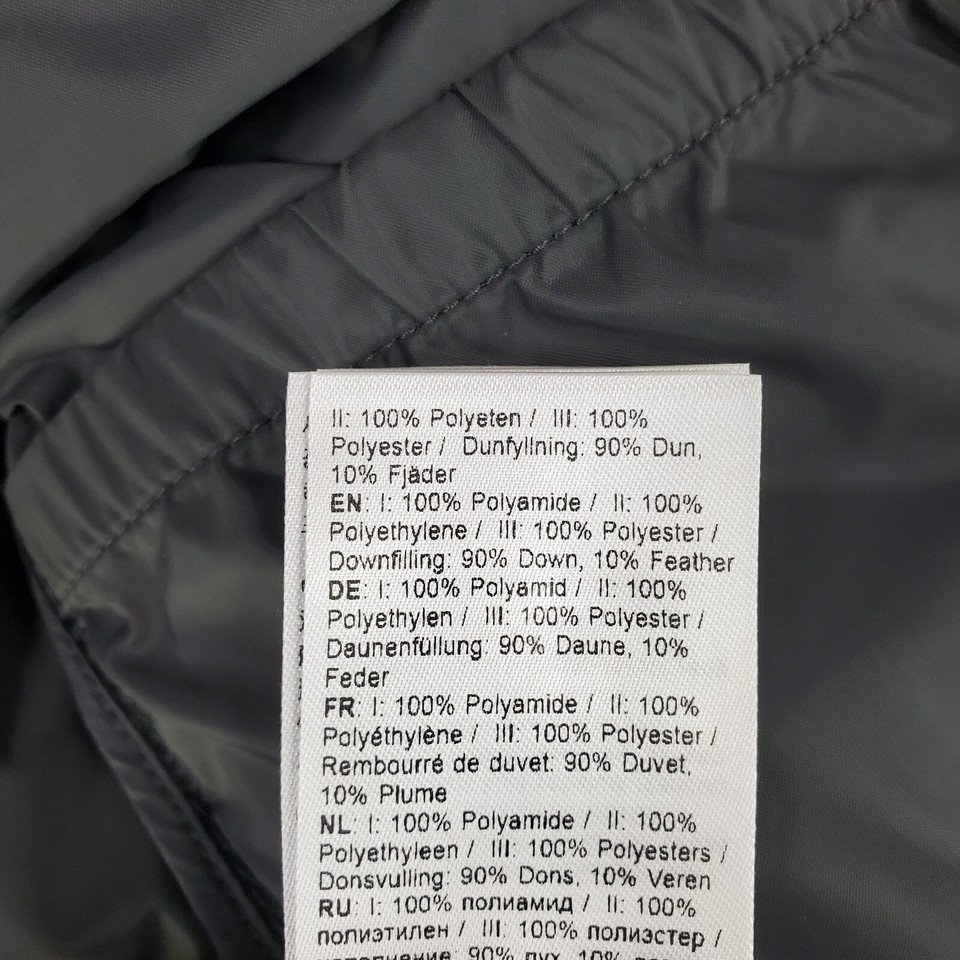 II: 100% Polyeten / III: 100%
Polyester / Dunfyllning: 90% Dun,
10% Fjäder
EN: I: 100% Polyamide / II: 100%
Polyethylene / III: 100% Polyester /
Downfilling: 90% Down, 10% Feather
DE: I: 100% Polyamid / II: 100%
Polyethylen / III: 100% Polyester /
Daunenfüllung: 90% Daune, 10%
Feder
FR: I: 100% Polyamide / II: 100%
Polyéthylène / III: 100% Polyester /
Rembourré de duvet: 90% Duvet,
10% Plume
NL: I: 100% Polyamide / II: 100%
Polyethyleen / III: 100% Polyesters /
Donsvulling: 90% Dons, 10% Veren
RU: I: 100% полиамид / II: 100%
полиэтилен / III: 100% полиэстер /
90% пух, 10%